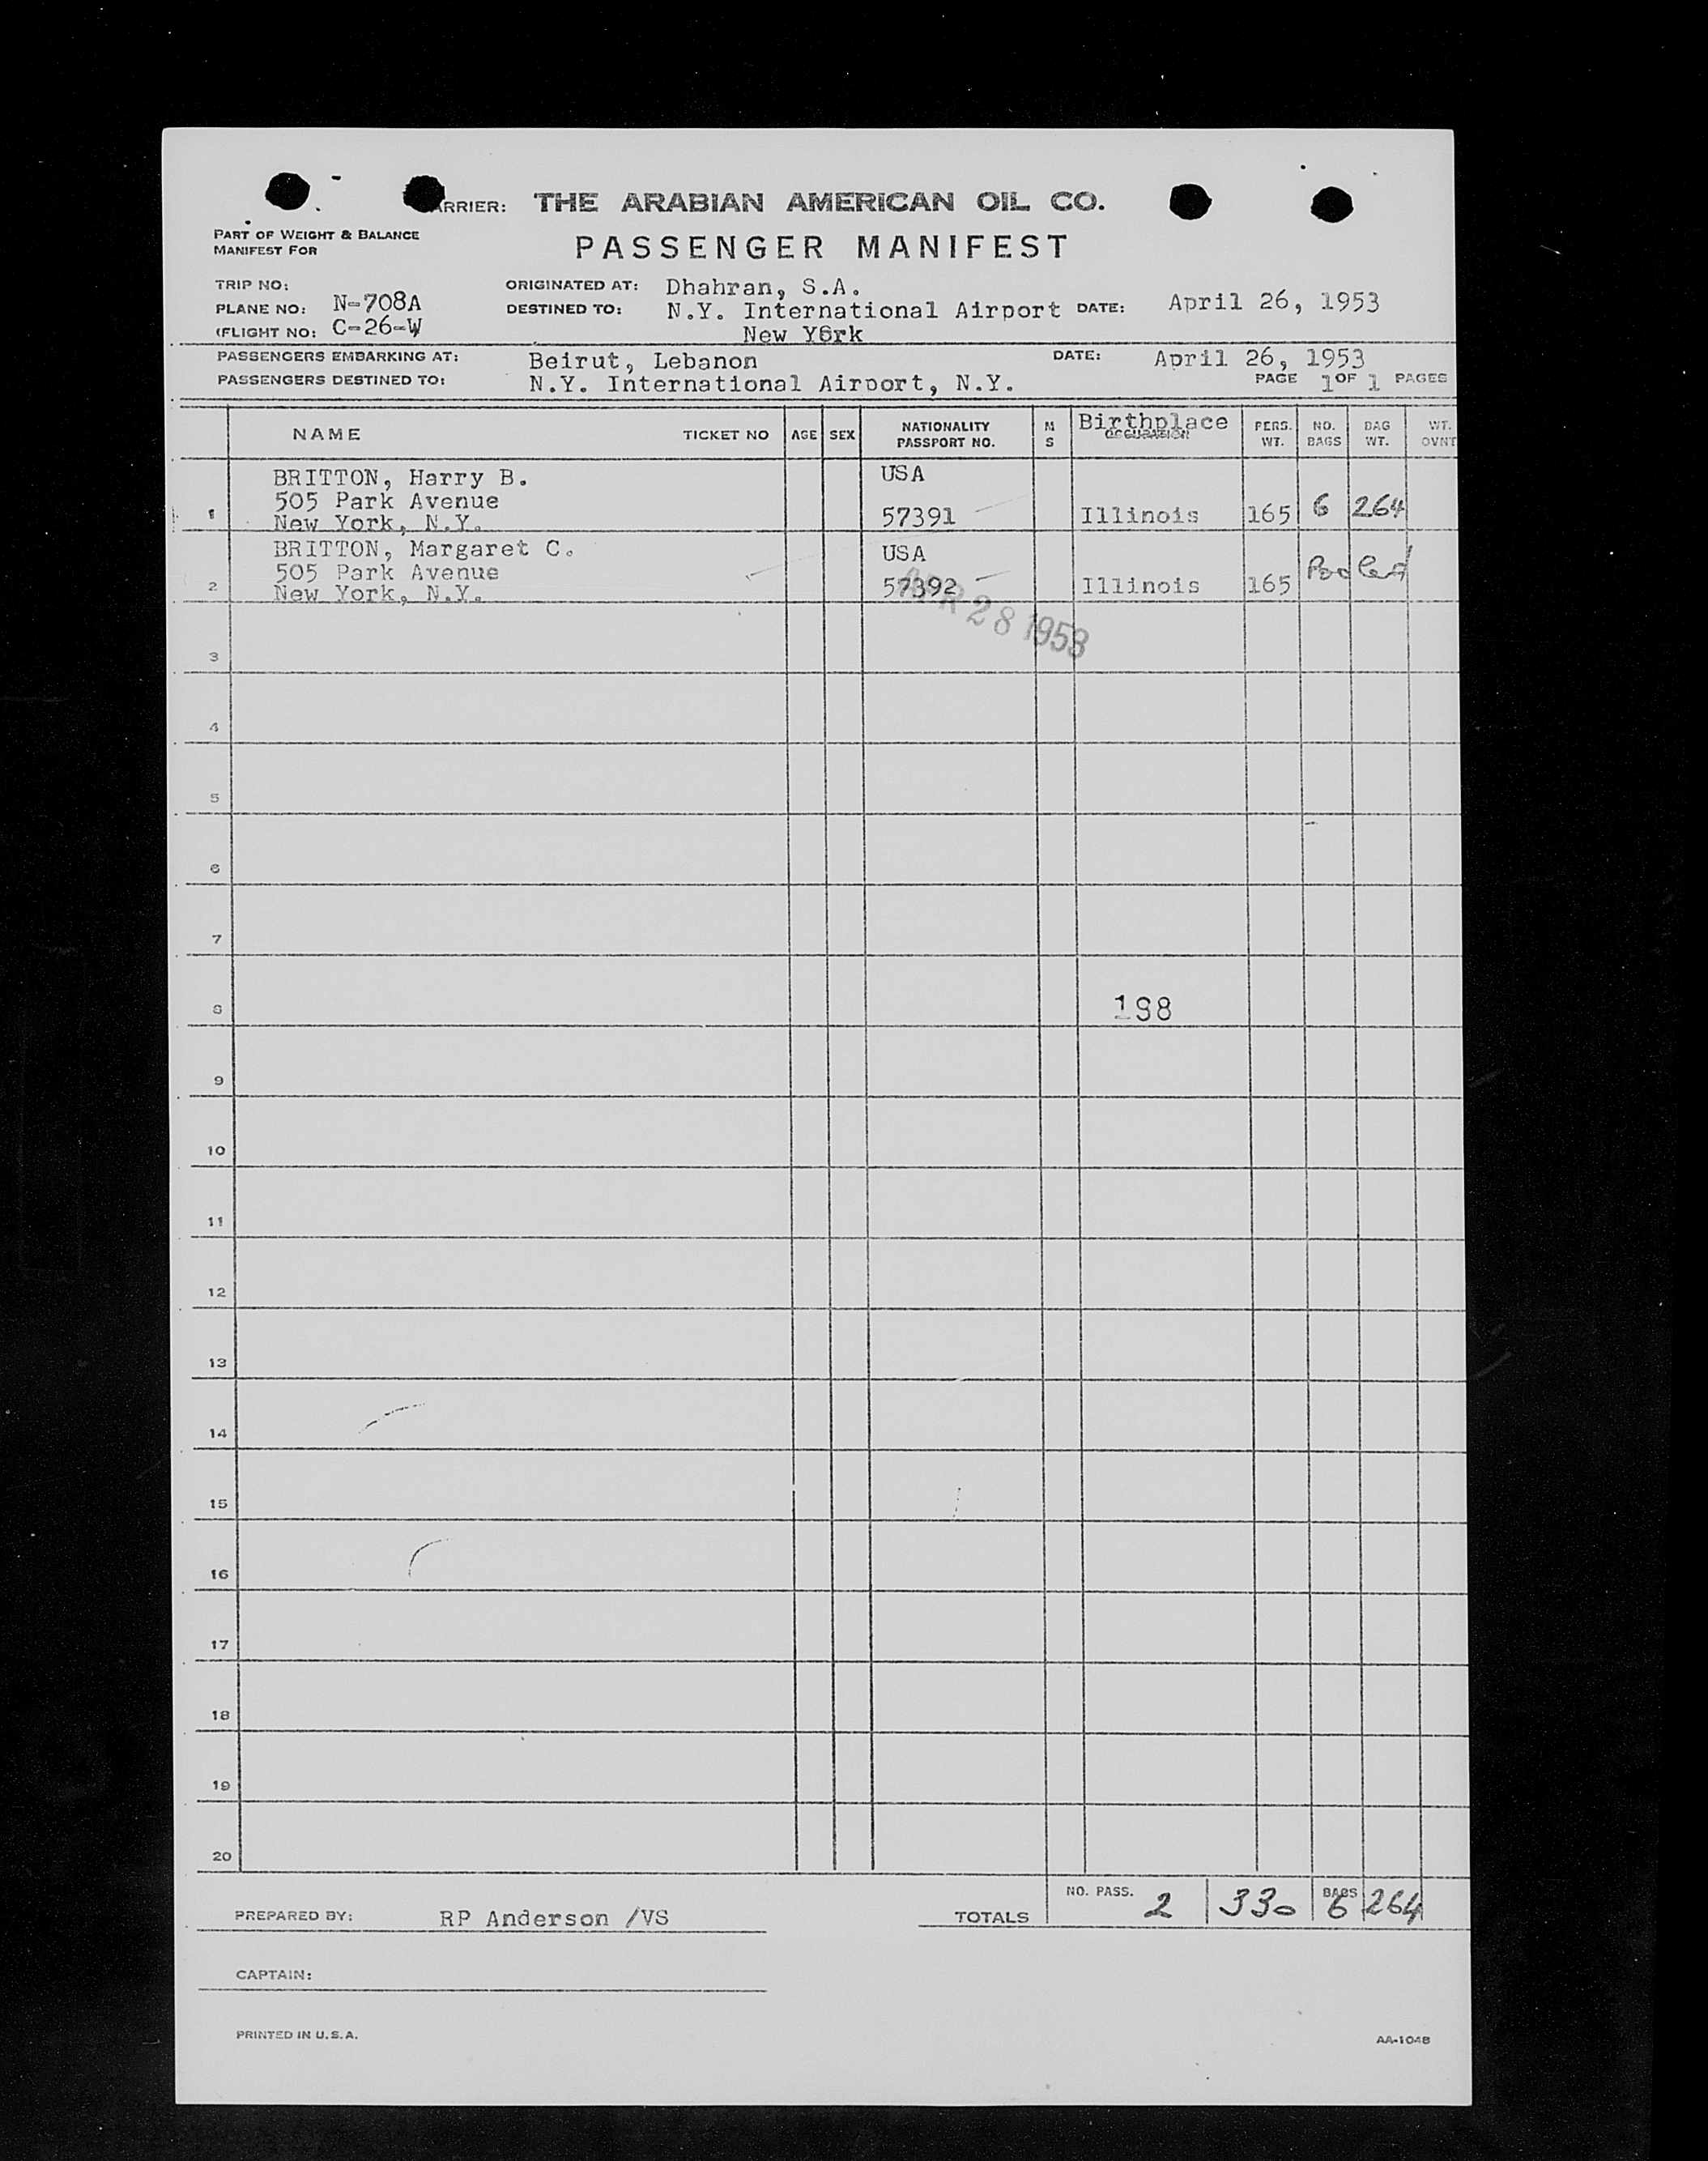 ARRIER: THE ARABIAN AMERICAN OIL CO.
PART OF WEIGHT & BALANCE
MANIFEST FOR
PASSENGER MANIFEST
TRIP NO:
PLANE NO: N-708A
(FLIGHT NO: C-26-W
ORIGINATED AT: Dhahran, S.A.
DESTINED TO: N.Y. International Airport DATE: April 26, 1953
New York
PASSENGERS EMBARKING AT: Beirut, Lebanon DATE: April 26, 1953
PASSENGERS DESTINED TO: N.Y. International Airport, N.Y. PAGE 1 OF 1 PAGES
NAME TICKET NO AGE SEX NATIONALITY PASSPORT NO. M S Birthplace OCCUPATION PERS. WT. NO. BAGS BAG WT. WT. OVNT
BRITTON, Harry B. USA
505 Park Avenue
1 New York, N.Y. 57391 Illinois 165 6 264
BRITTON, Margaret C. USA
505 Park Avenue Pooled
2 New York, N.Y. 57392 Illinois 165
APR 28 1953
3
4
5
6
7
8 198
9
10
11
12
13
14
15
16
17
18
19
20
PREPARED BY: RP Anderson /VS TOTALS NO. PASS. 2 330 BAGS 6 264
CAPTAIN:
PRINTED IN U.S.A. AA-1048